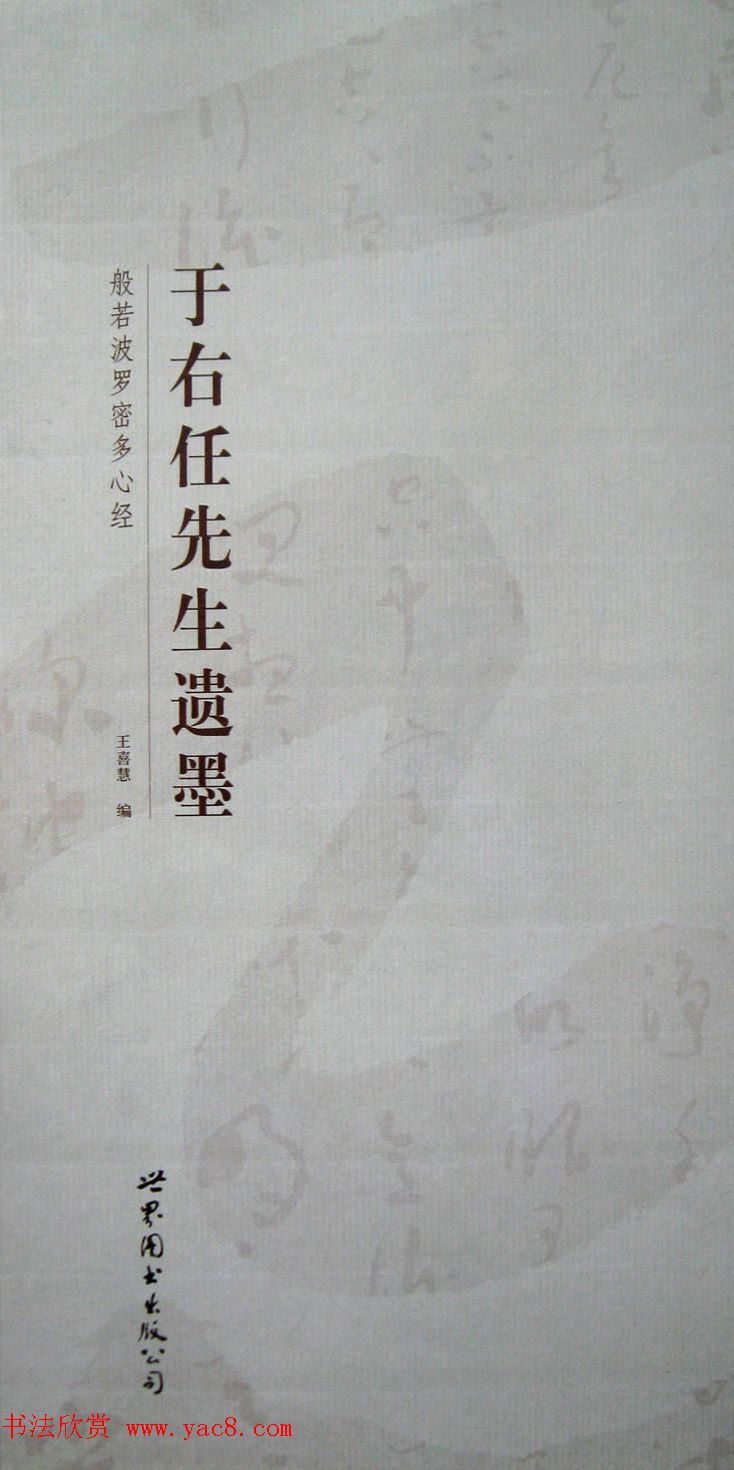 于右任先生遗墨
般若波罗密多心经
王喜慧 编
世界图书出版公司
书法欣赏 www.yac8.com